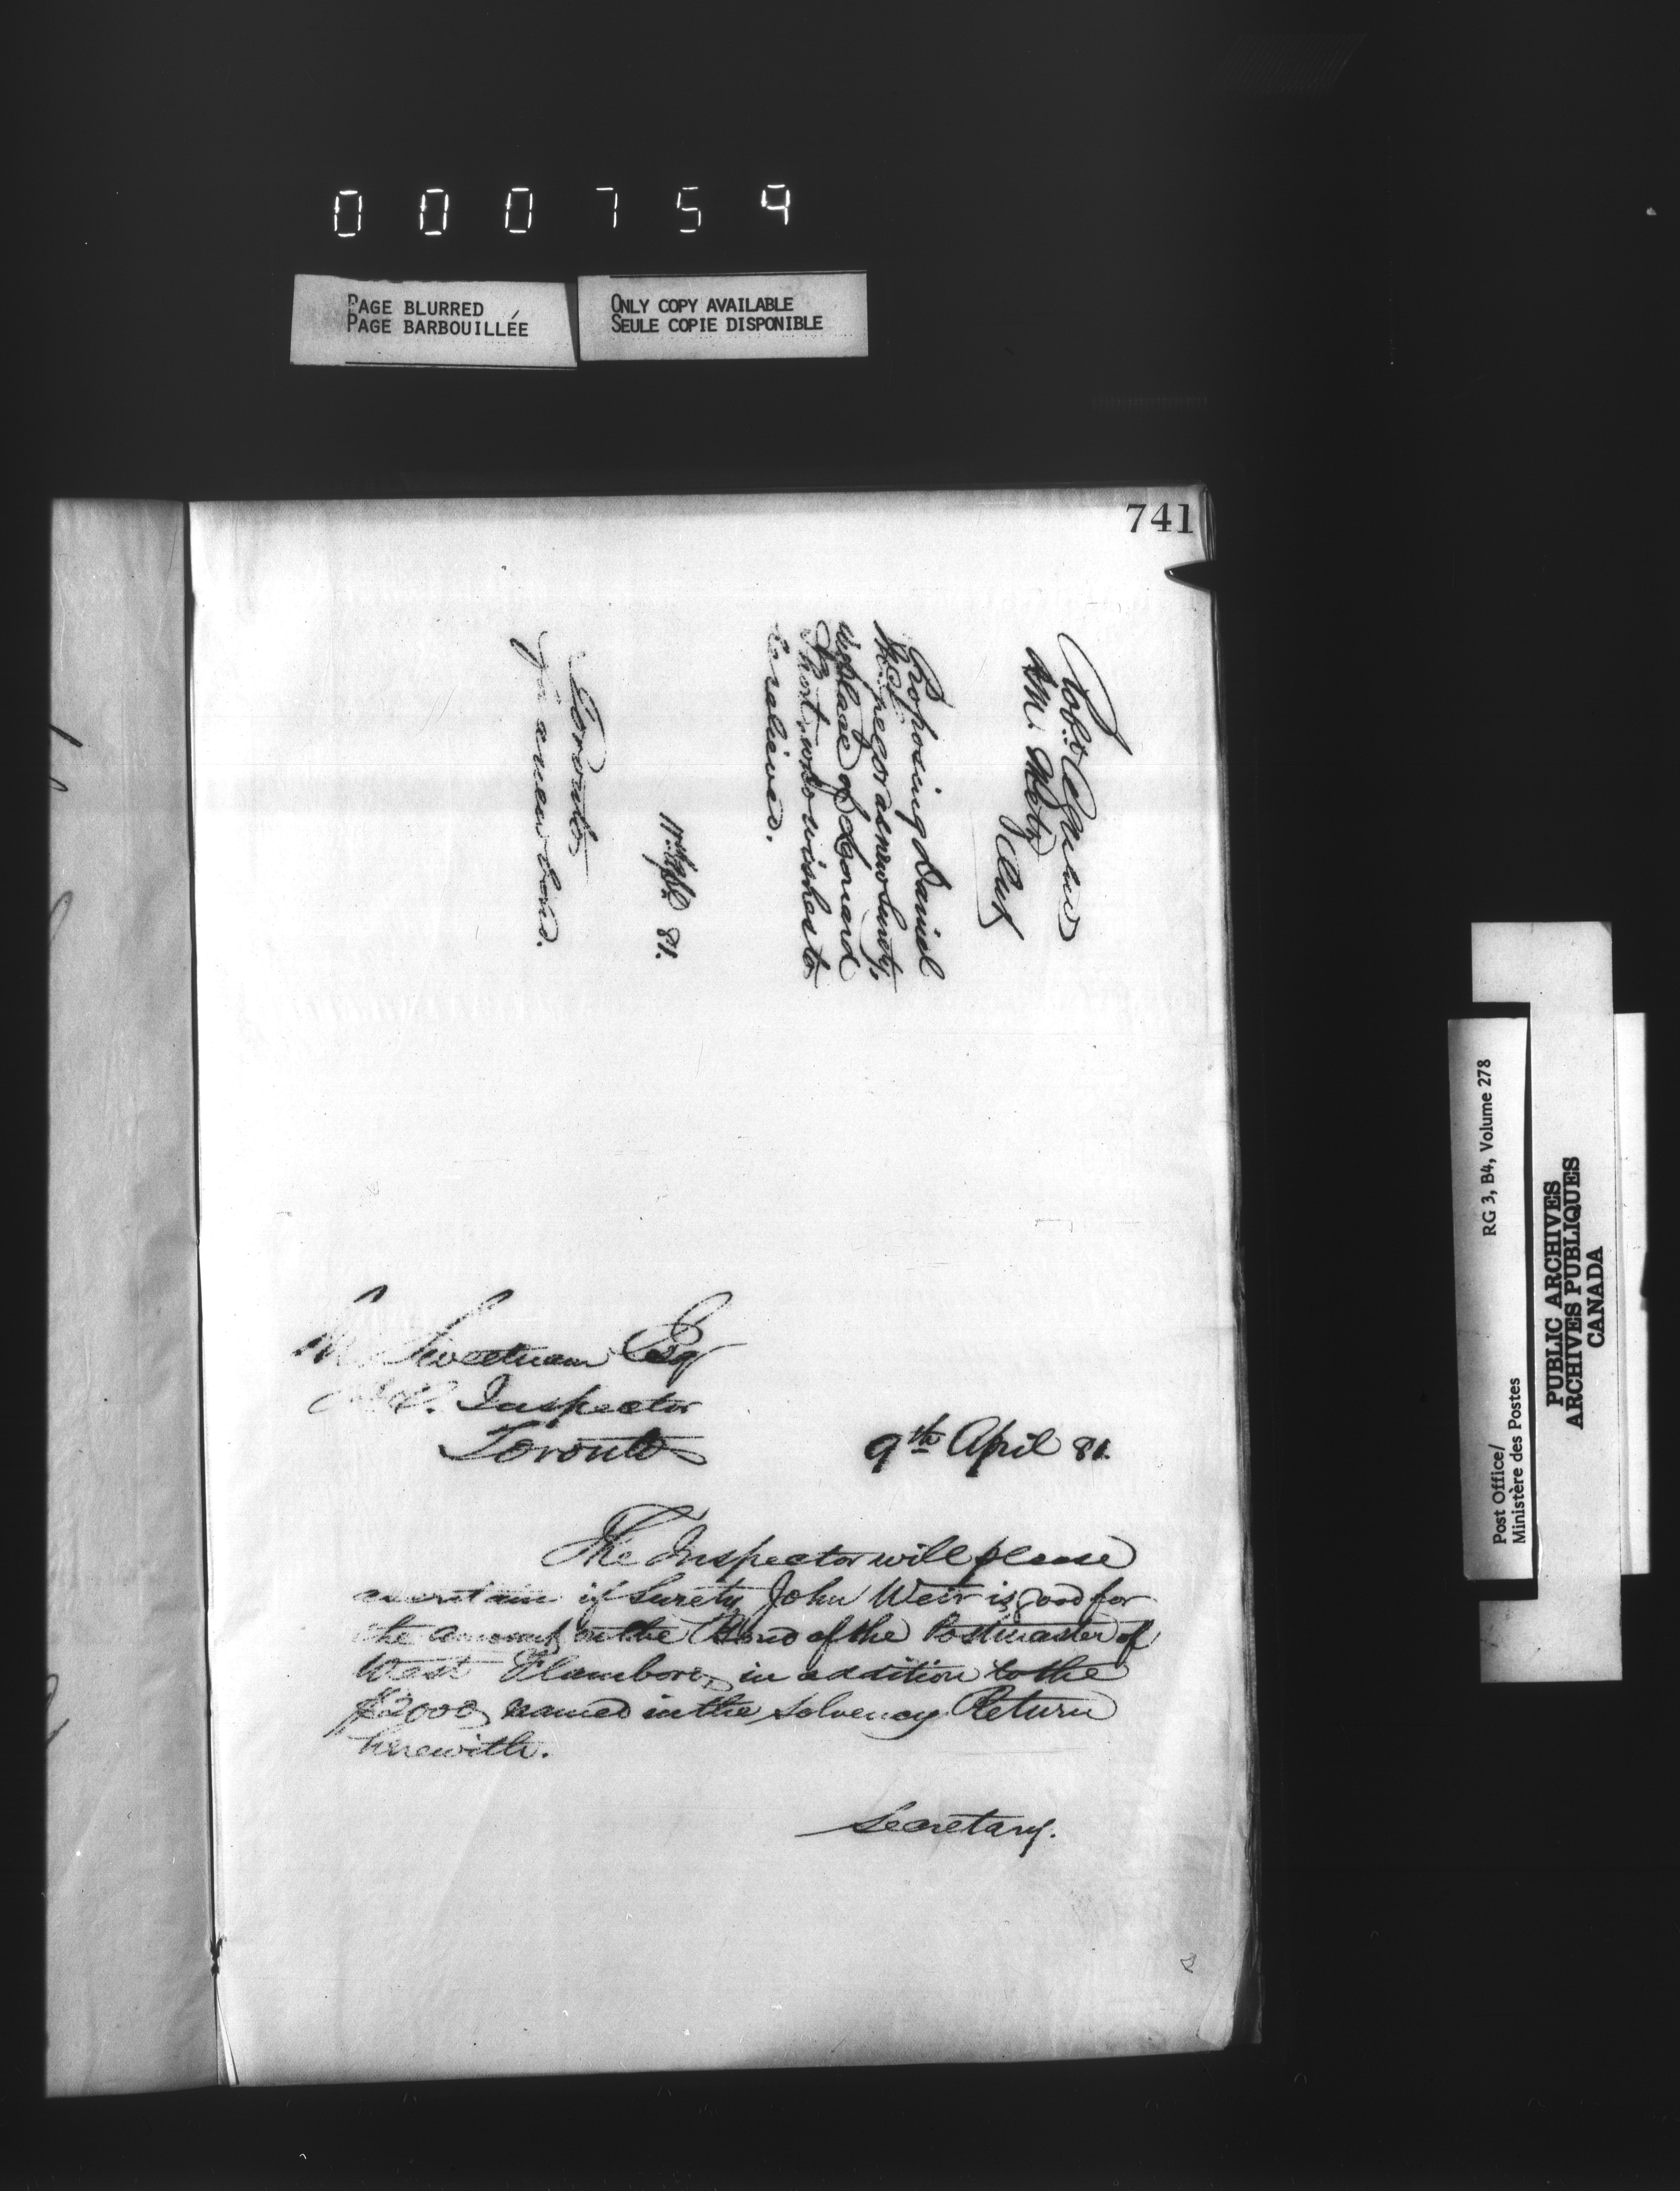 000759
PAGE BLURRED
PAGE BARBOUILLÉE
ONLY COPY AVAILABLE
SEULE COPIE DISPONIBLE
741
Robt
Proposing Daniel
McGregor as new Surety,
in place of Leonard
Short, who wishes to
be relieved.
11th Apl 81.
Toronto
for a new bond.
M. Sweetnam Esq
P.O. Inspector
Toronto
9th April 81.
The Inspector will please
ascertain if Surety John Weir is good for
the amount on the Bond of the Postmaster of
West Flamboro, in addition to the
$2000 named in the Solvency Return
herewith.
Secretary.
Post Office/
Ministère des Postes
RG 3, B4, Volume 278
PUBLIC ARCHIVES
ARCHIVES PUBLIQUES
CANADA